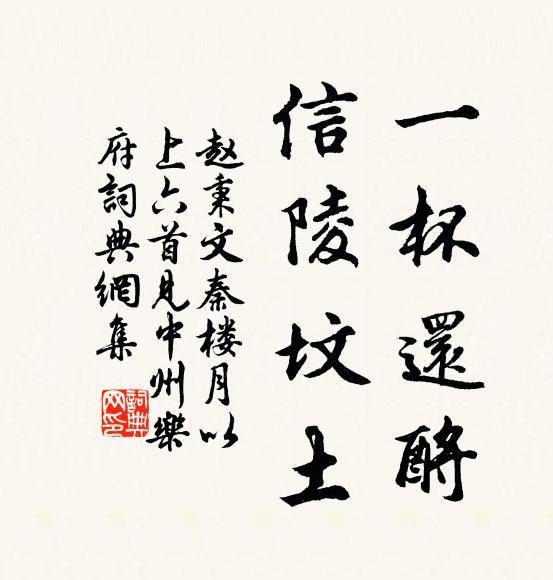 一杯還酹
信陵坟土
赵秉文秦楼月以
上六首見中州樂
府詞典網集
詞典网印